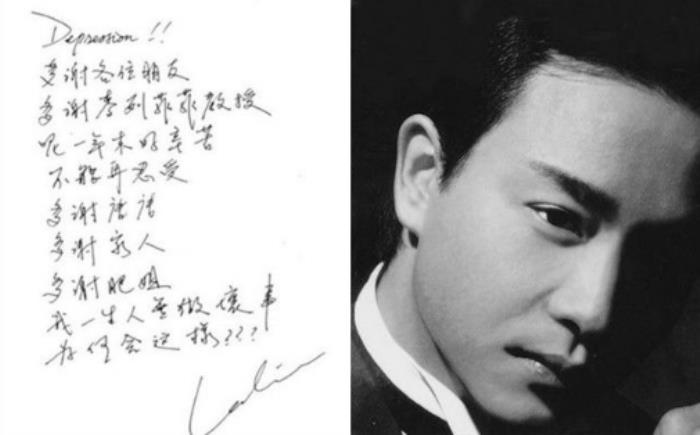 Depression!!
多谢各位朋友
多谢李列菲菲教授
呢一年来好辛苦
不能再忍受
多谢唐唐
多谢家人
多谢肥姐
我一生人无做坏事
为何会这样???